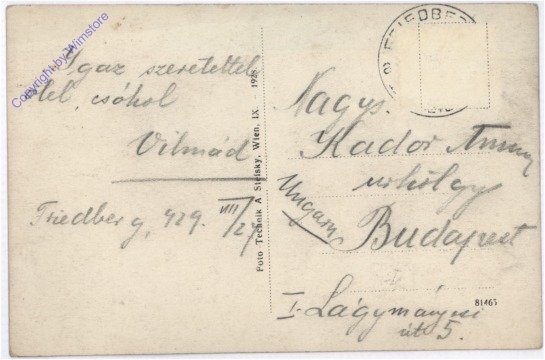 Igaz szeretettel
ölel, csókol
Vilmád
Friedberg, 929. VIII/24
Foto Technik A Stefsky, Wien, IX - 1928
FRIEDBE
Nagys.
Kador Annus
úrhölgy
Ungarn
Budapest
I. Lágymányosi
út 5.
81465
Copyright by Wimstore